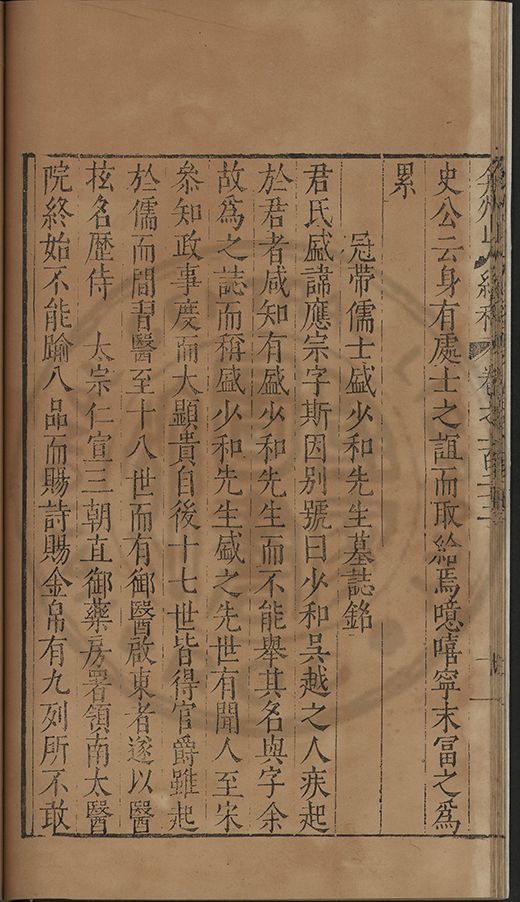 史公云身有處士之誼而取給焉噫嘻寧末富之爲
累
冠帶儒士盛少和先生墓誌銘
君氏盛諱應宗字斯因別號曰少和吳越之人疾起
於君者咸知有盛少和先生而不能舉其名與字余
故爲之誌而稱盛少和先生盛之先世有聞人至宋
叅知政事度而大顯貴自後十七世皆得官爵雖起
於儒而間習醫至十八世而有御醫啟東者遂以醫
㧕名歷侍 太宗仁宣三朝直御藥房署領南太醫
院終始不能踰八品而賜詩賜金帛有九列所不敢